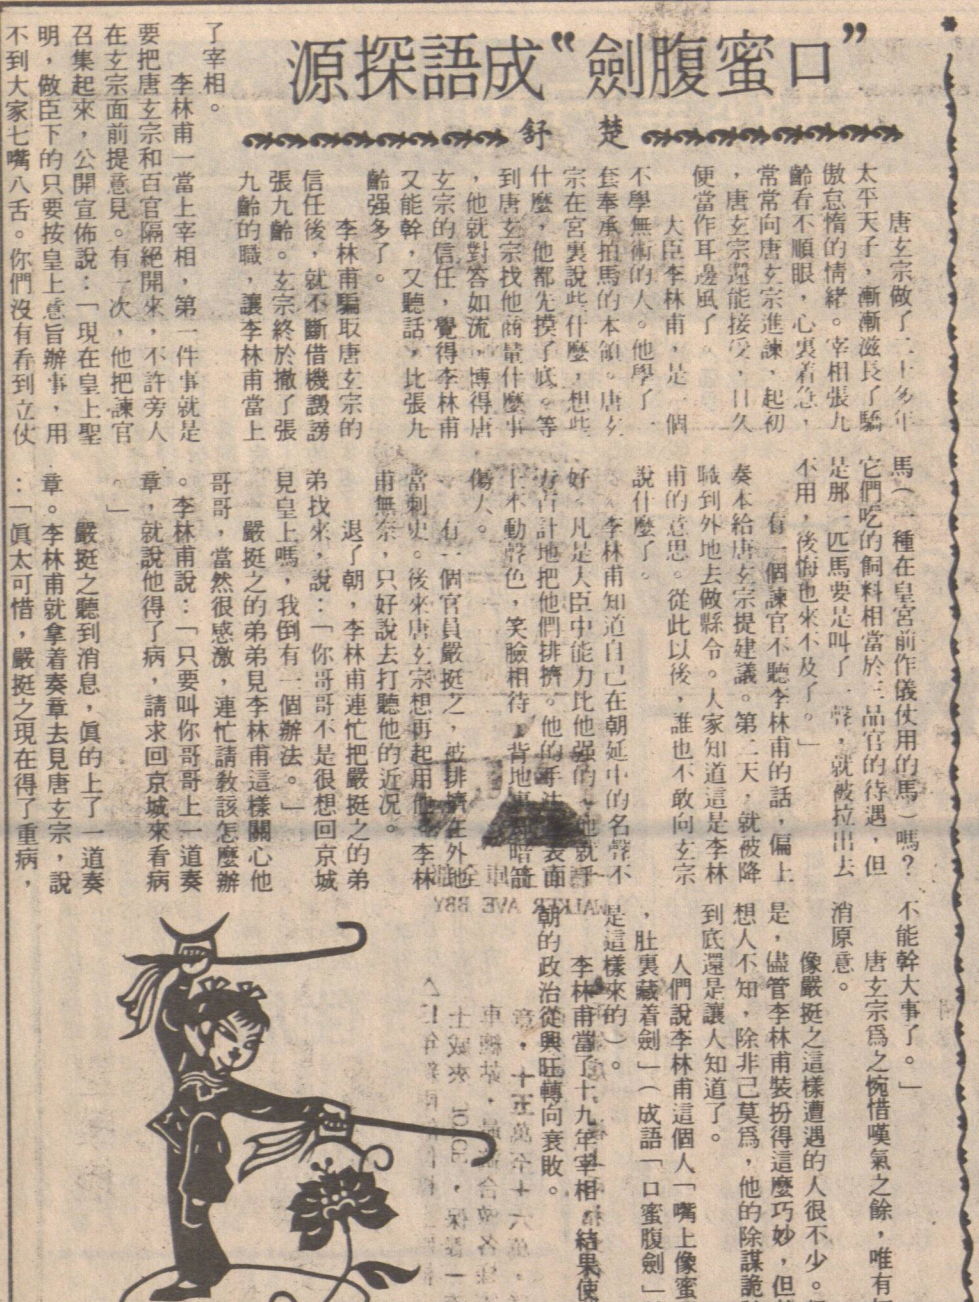 ”口蜜腹劍“成語探源
楚 舒
唐玄宗做了二十多年
太平天子，漸漸滋長了驕
傲怠惰的情緒。宰相張九
齡看不順眼，心裏着急，
常常向唐玄宗進諫，起初
，唐玄宗還能接受，日久
便當作耳邊風了。
大臣李林甫，是一個
不學無術的人。他學了一
套奉承拍馬的本領。唐玄
宗在宮裏說些什麼，想些
什麼，他都先摸了底。等
到唐玄宗找他商量什麼事
，他就對答如流，博得唐
玄宗的信任，覺得李林甫
又能幹，又聽話，比張九
齡强多了。
李林甫騙取唐玄宗的
信任後，就不斷借機譭謗
張九齡。玄宗終於撤了張
九齡的職，讓李林甫當上
了宰相。
李林甫一當上宰相，第一件事就是
要把唐玄宗和百官隔絕開來，不許旁人
在玄宗面前提意見。有一次，他把諫官
召集起來，公開宣佈說：「現在皇上聖
明，做臣下的只要按皇上意旨辦事，用
不到大家七嘴八舌。你們沒有看到立仗
馬（一種在皇宮前作儀仗用的馬）嗎？
它們吃的飼料相當於三品官的待遇，但
是那一匹馬要是叫了一聲，就被拉出去
不用，後悔也來不及了。」
有一個諫官不聽李林甫的話，偏上
奏本給唐玄宗提建議。第二天，就被降
職到外地去做縣令。人家知道這是李林
甫的意思。從此以後，誰也不敢向玄宗
說什麼了。
李林甫知道自己在朝延中的名聲不
好。凡是人臣中能力比他强的，他就千
方百計地把他們排擠。他的手法，表面
上不動聲色，笑臉相待，背地裏 暗箭
傷人。
有一個官員嚴挺之，被排擠在外地
當刺史。後來唐玄宗想再起用他。李林
甫無奈，只好說去打聽他的近况。
退了朝，李林甫連忙把嚴挺之的弟
弟找來，說：「你哥哥不是很想回京城
見皇上嗎，我倒有一個辦法。」
嚴挺之的弟弟見李林甫這樣關心他
哥哥，當然很感激，連忙請教該怎麼辦
。李林甫說：「只要叫你哥哥上一道奏
章，就說他得了病，請求回京城來看病
。」
嚴挺之聽到消息，眞的上了一道奏
章。李林甫就拿着奏章去見唐玄宗，說
：「眞太可惜，嚴挺之現在得了重病，
不能幹大事了。」
唐玄宗爲之惋惜嘆氣之餘，唯有
消原意。
像嚴挺之這樣遭遇的人很不少。
是，儘管李林甫裝扮得這麼巧妙，但
想人不知，除非己莫爲，他的除謀詭
到底還是讓人知道了。
人們說李林甫這個人「嘴上像蜜
，肚裏藏着劍」（成語「口蜜腹劍」
是這樣來的）。
李林甫當了十九年宰相，結果使
朝的政治從興旺轉向衰敗。